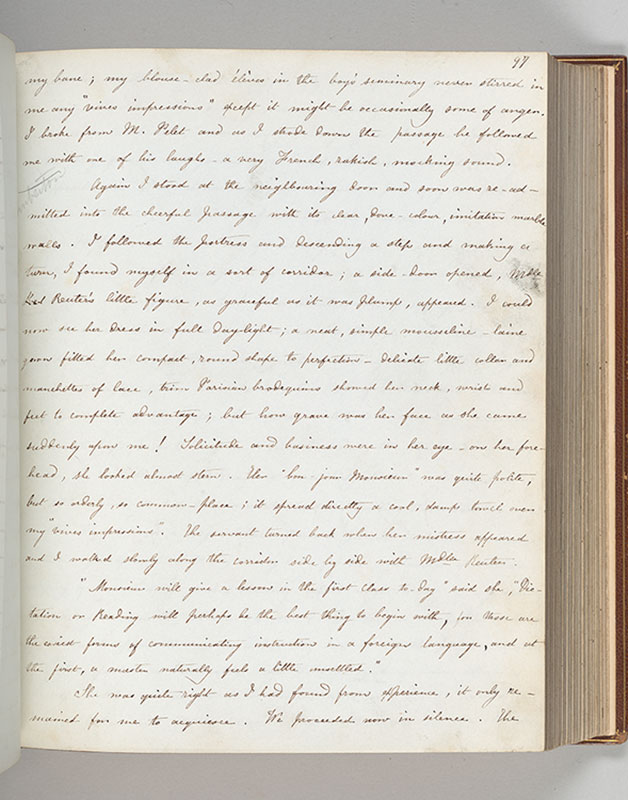 97
my bane; my blouse-clad élèves in the boy's seminary never stirred in
me any "vives impressions" except it might be occasionally some of anger.
I broke from M. Pelet and as I strode down the passage he followed
me with one of his laughs - a very French, rakish, mocking sound.
Again I stood at the neighbouring door and soon was re-ad-
mitted into the cheerful passage with its clear, dove-colour, imitation marble
walls. I followed the portress and descending a step and making a
turn, I found myself in a sort of corridor; a side-door opened, Mdlle
Reuter's little figure, as graceful as it was plump, appeared. I could
now see her dress in full day-light; a neat, simple mousseline-laine
gown fitted her compact, round shape to perfection - delicate little collar and
manchettes of lace, trim Parisian brodequins showed her neck, wrists and
feet to complete advantage; but how grave was her face as she came
suddenly upon me! Solicitude and business were in her eye - on her fore-
head, she looked almost stern. Her "bon-jour Monsieur" was quite polite,
but so orderly, so common-place; it spread directly a cool, damp towel over
my "vives impressions". The servant turned back when her mistress appeared
and I walked slowly along the corridor side by side with Mdlle Reuter.
"Monsieur will give a lesson in the first class to-day" said she, "Dic-
tation or Reading will perhaps be the best thing to begin with, for those are
the easiest forms of communicating instruction in a foreign language, and at
the first, a master naturally feels a little unsettled."
She was quite right as I had found from experience, it only re-
mained for me to acquiesce. We proceeded now in silence. The